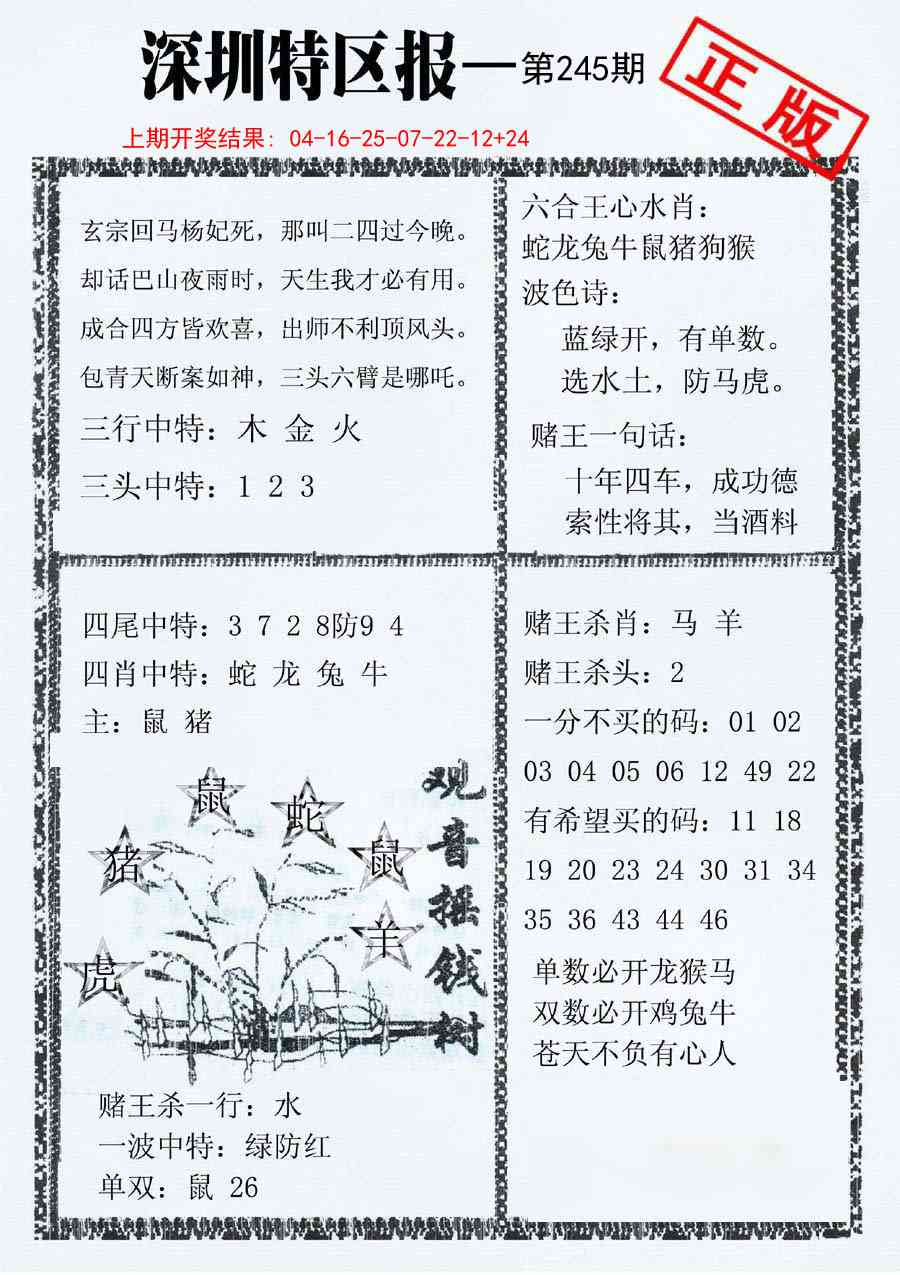 深圳特区报—第245期
正版
上期开奖结果：04-16-25-07-22-12+24
玄宗回马杨妃死，那叫二四过今晚。
却话巴山夜雨时，天生我才必有用。
成合四方皆欢喜，出师不利顶风头。
包青天断案如神，三头六臂是哪吒。
三行中特：木 金 火
三头中特：1 2 3
六合王心水肖：
蛇龙兔牛鼠猪狗猴
波色诗：
蓝绿开，有单数。
选水土，防马虎。
赌王一句话：
十年四车，成功德
索性将其，当酒料
四尾中特：3 7 2 8防9 4
四肖中特：蛇 龙 兔 牛
主：鼠 猪
鼠
蛇
猪
鼠
羊
虎
观音摇钱树
赌王杀一行：水
一波中特：绿防红
单双：鼠 26
赌王杀肖：马 羊
赌王杀头：2
一分不买的码：01 02
03 04 05 06 12 49 22
有希望买的码：11 18
19 20 23 24 30 31 34
35 36 43 44 46
单数必开龙猴马
双数必开鸡兔牛
苍天不负有心人